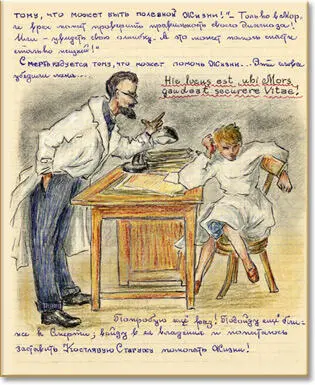 тому, что может быть полезной Жизни!"– Только в Мор-
ге врач может проверить правильность своего диагноза!
Или – увидеть свою ошибку. А это может помочь спасти
столько жизней!"
Смерть радуется тому, что может помочь Жизни... Эти слова
убедили меня...
Hic locus est, ubi Mors
gaudeat securere Vitae,
Попробую ещё раз! Подойду ещё бли-
же к Смерти; войду в её владения и попытаюсь
заставить Костлявую Старуху помогать Жизни!